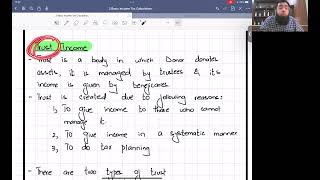 2.Basic Income Tax Calculation
Trust Income
- Trust is a body in which Donor donates
assets, it is managed by trustees & its
income is given by beneficaries
- Trust is created due to following reasons:
1) To give income to those who cannot
manage it.
2) To give income in a systematic manner
3) To do tax planning
- There are two types of trust